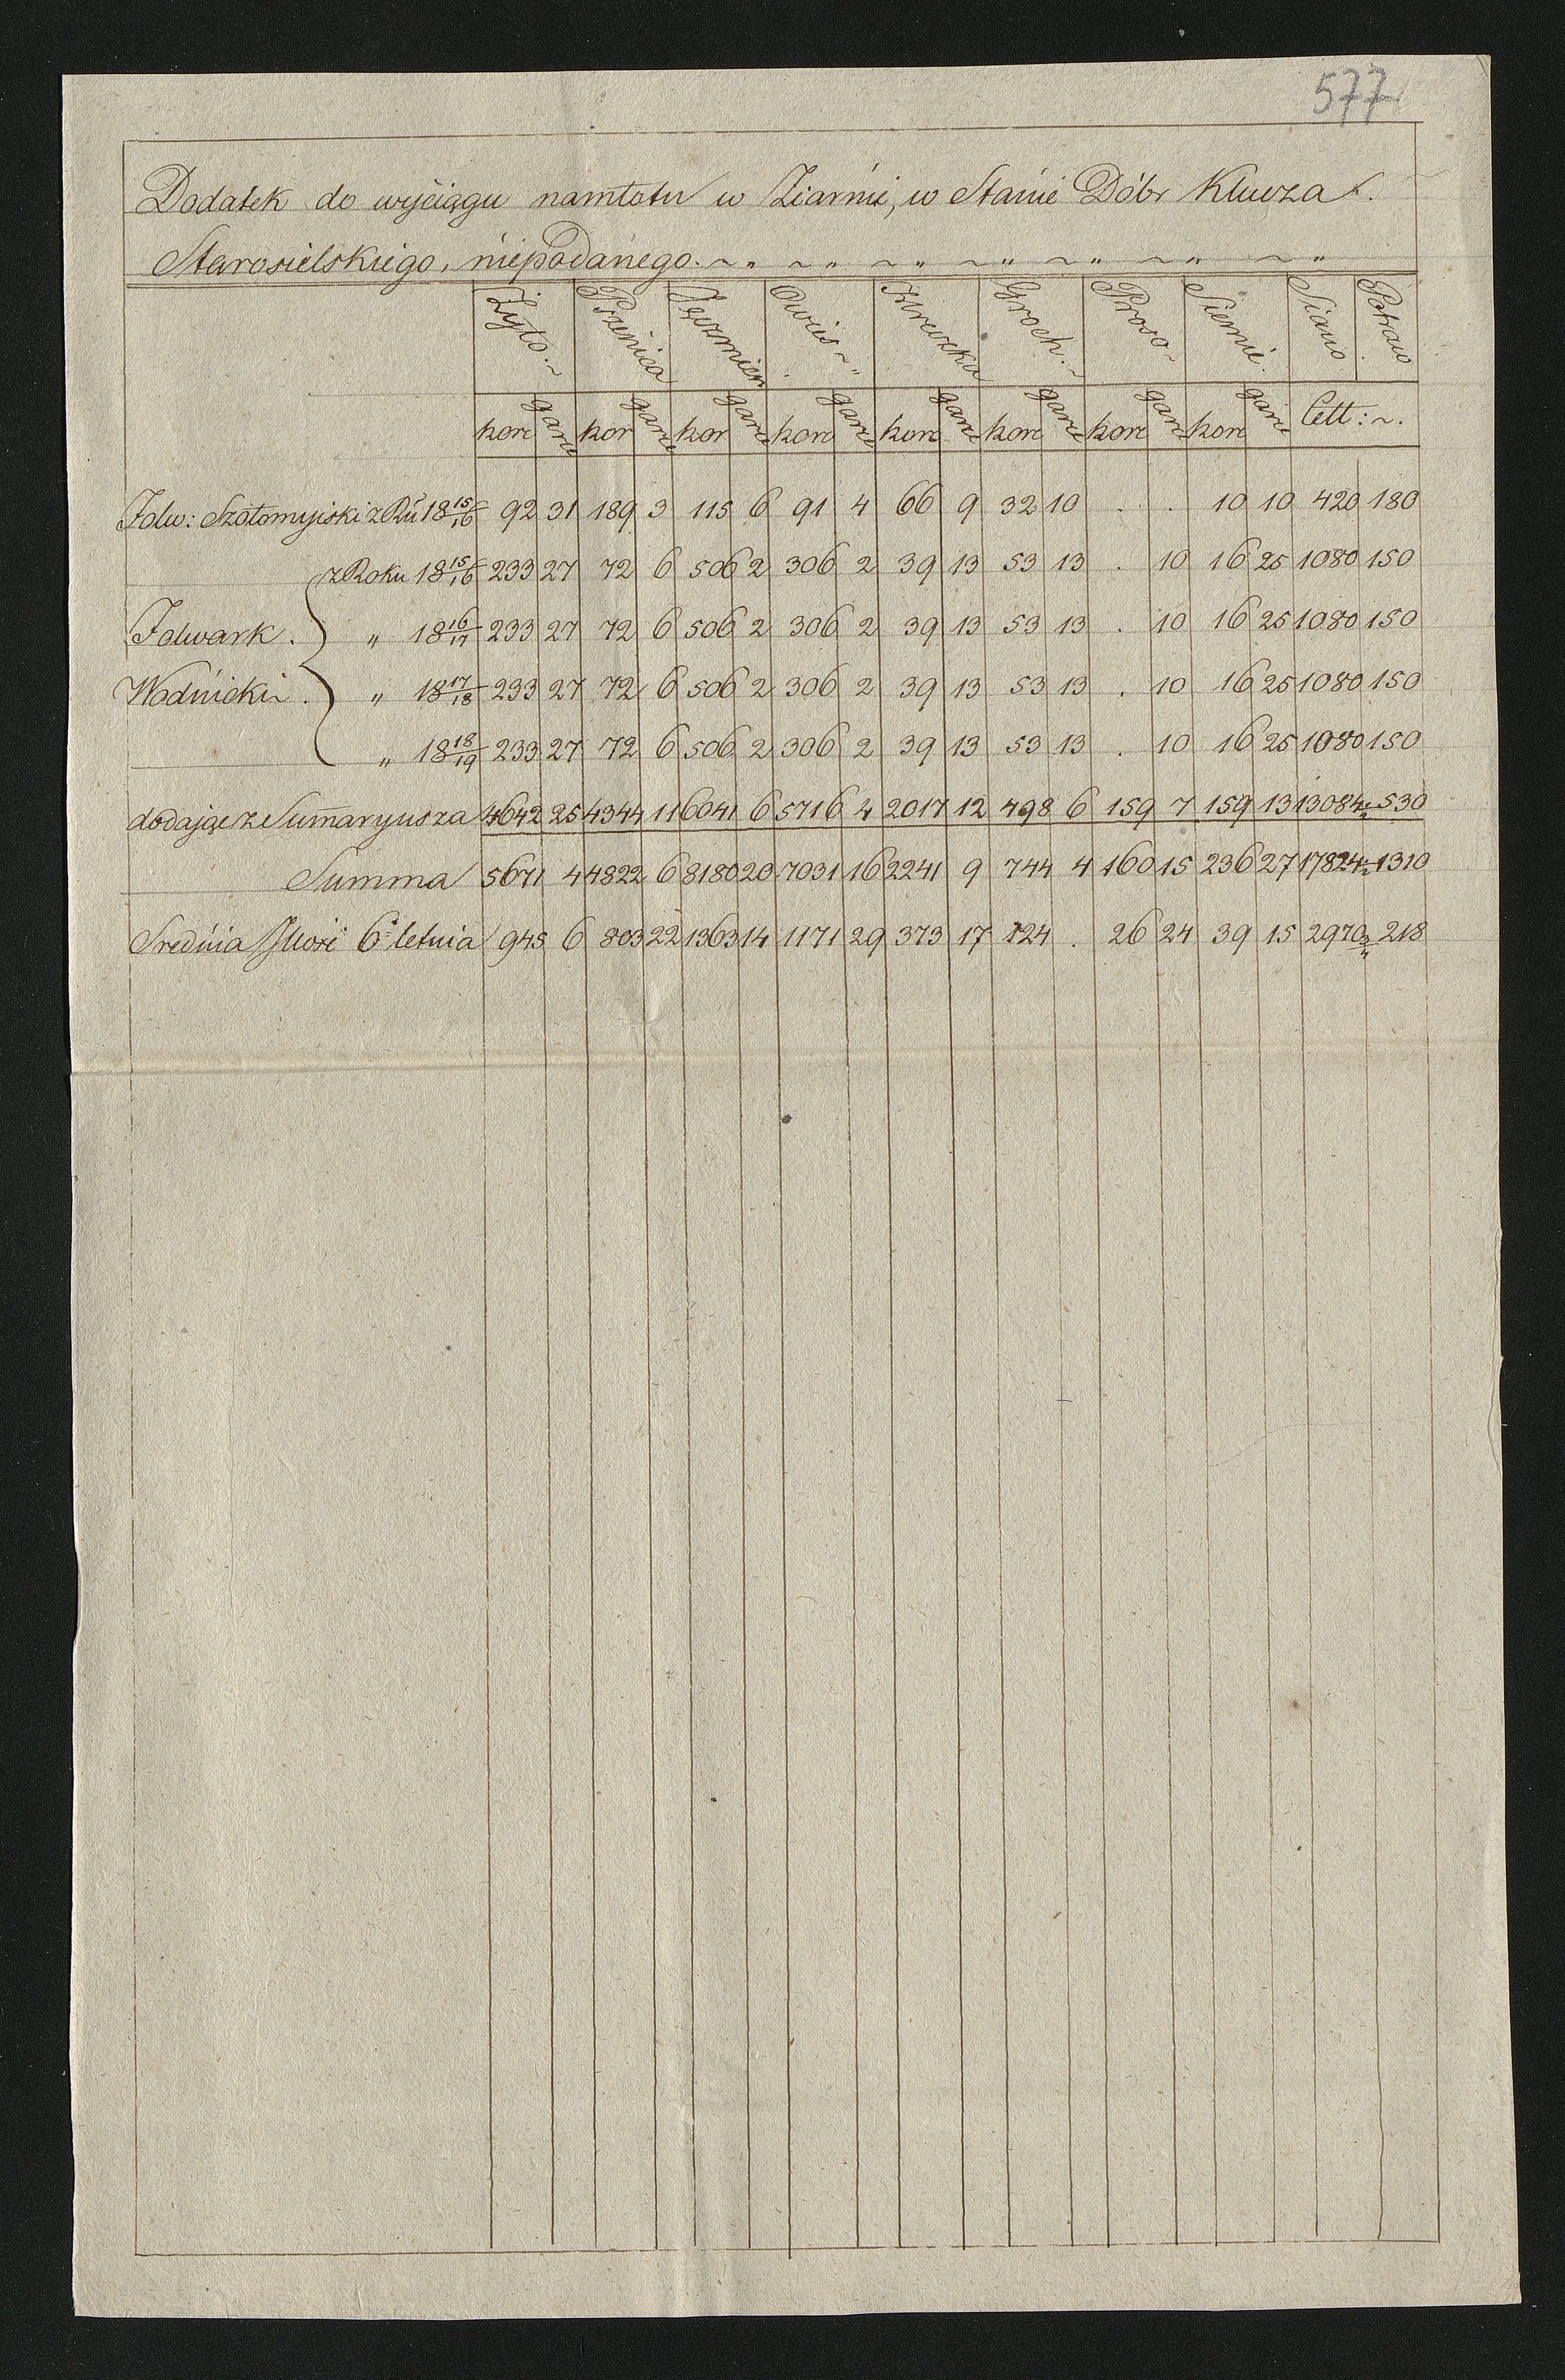 577
Dodatek do wyciągu namłotu w Ziarnie, w Stanie Dóbr Klucza
Starosielskiego, niepodanego.
Żyto. Pszenica Jęczmien Owies Hreczka Groch. Proso Siemie. Siano Potraw
kore garce kor garce kor garce kore garce kore garce kore garce kore garce kore garce Cett:
Folw: Szołomyiski z Ru 18 15/16 92 31 189 3 115 6 91 4 66 9 32 10 . . 10 10 420 180
z Roku 18 15/16 233 27 72 6 506 2 306 2 39 13 53 13 . 10 16 25 1080 150
Folwark. „ 18 16/17 233 27 72 6 506 2 306 2 39 13 53 13 . 10 16 25 1080 150
Wodnicki. „ 18 17/18 233 27 72 6 506 2 306 2 39 13 53 13 . 10 16 25 1080 150
„ 18 18/19 233 27 72 6 506 2 306 2 39 13 53 13 . 10 16 25 1080 150
dodając z Sumaryusza 4642 25 4344 11 6041 6 5716 4 2017 12 498 6 159 7 159 13 13084 530
Summa 5671 4 4822 6 8180 20 7031 16 2241 9 744 4 160 15 236 27 17824 1310
Srednia Ilość 6 letnia 945 6 803 22 1363 14 1171 29 373 17 124 . 26 24 39 15 2970 218